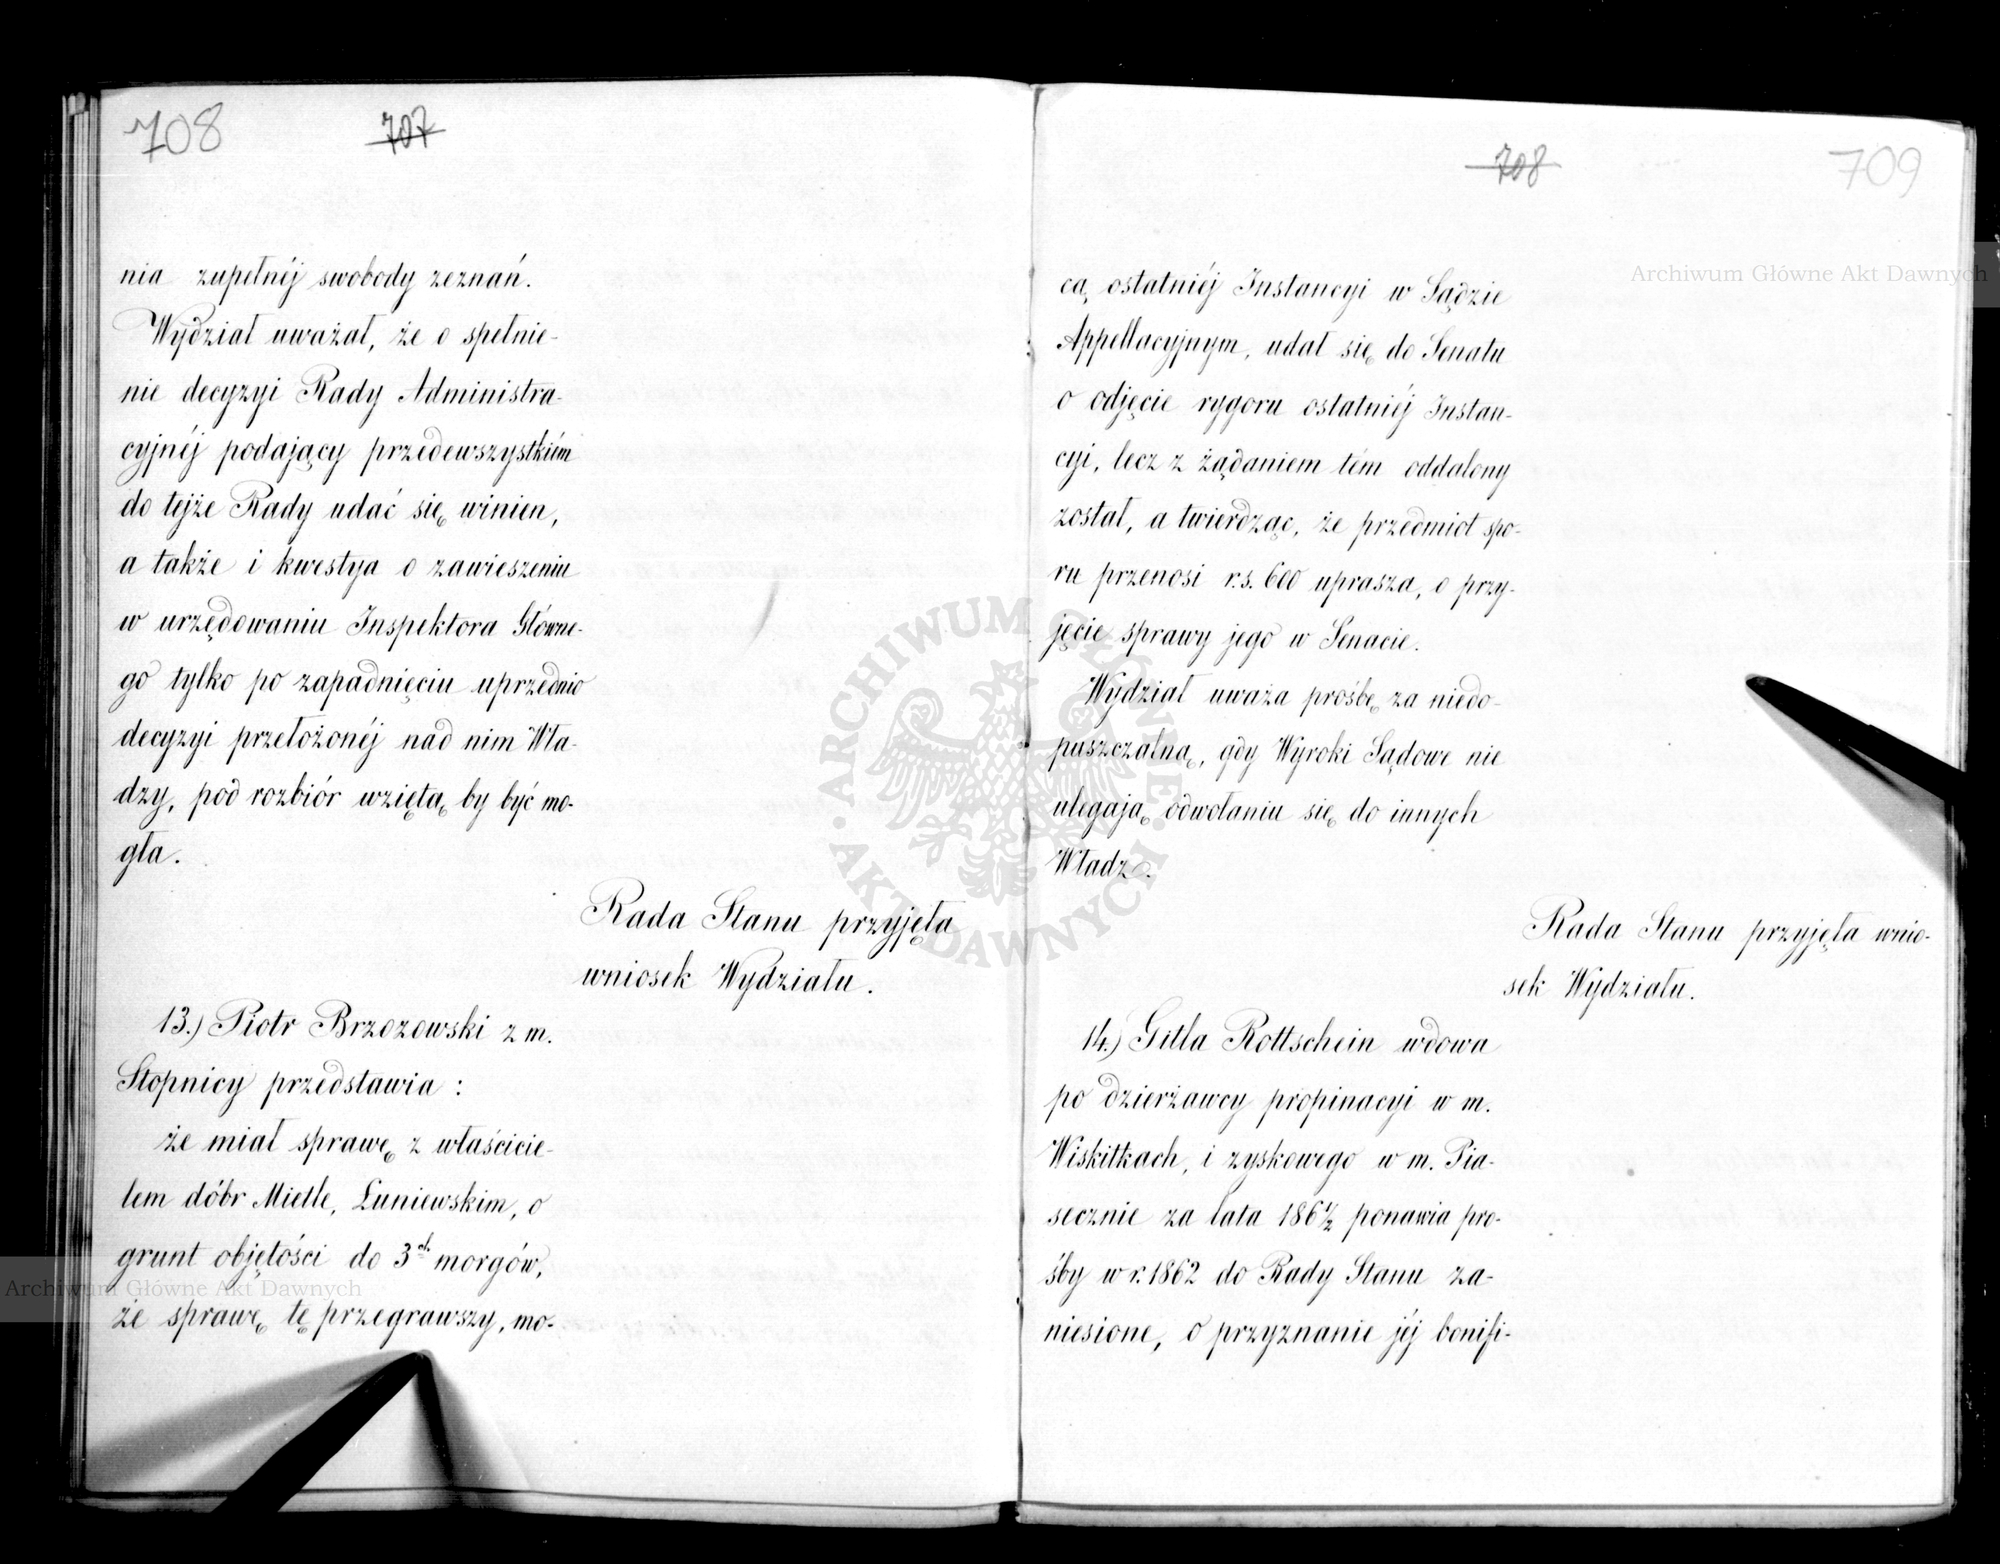 708
707
nia zupełnéj swobody zeznań.
Wydział uważał, że o spełnie-
nie decyzyi Rady Administra-
cyjnéj podający przedewszystkiém
do tejże Rady udać się winien,
a także i kwestya o zawieszeniu
w urzędowaniu Inspektora Główne-
go tylko po zapadnięciu uprzednio
decyzyi przełożonéj nad nim Wła-
dzy, pod rozbiór wziętą by być mo-
gła.
Rada Stanu przyjęła
wniosek Wydziału.
13.) Piotr Brzozowski z m.
Stopnicy przedstawia:
że miał sprawę z właścicie-
lem dóbr Mietle, Łuniewskim, o
grunt objętości do 3ch morgów,
że sprawę tę przegrawszy, mo-
708
709
cą ostatniéj Instancyi w Sądzie
Appellacyjnym, udał się do Senatu
o odjęcie rygoru ostatniéj Instan-
cyi, lecz z żądaniem tém oddalony
został, a twierdząc, że przedmiot spo-
ru przenosi r.s. 600 uprasza, o przy-
jęcie sprawy jego w Senacie.
Wydział uważa prośbę za niedo-
puszczalną, gdy Wyroki Sądowe nie
ulegają odwołaniu się do innych
Władz.
Rada Stanu przyjęła wnio-
sek Wydziału.
14.) Gitla Rottschein wdowa
po dzierżawcy propinacyi w m.
Wiskitkach, i zyskowego w m. Pia-
secznie za lata 186½ ponawia pro-
śby w r. 1862 do Rady Stanu za-
niesione, o przyznanie jéj bonifi-
Archiwum Główne Akt Dawnych
Archiwum Główne Akt Dawnych
ARCHIWUM GŁÓWNE
AKT DAWNYCH